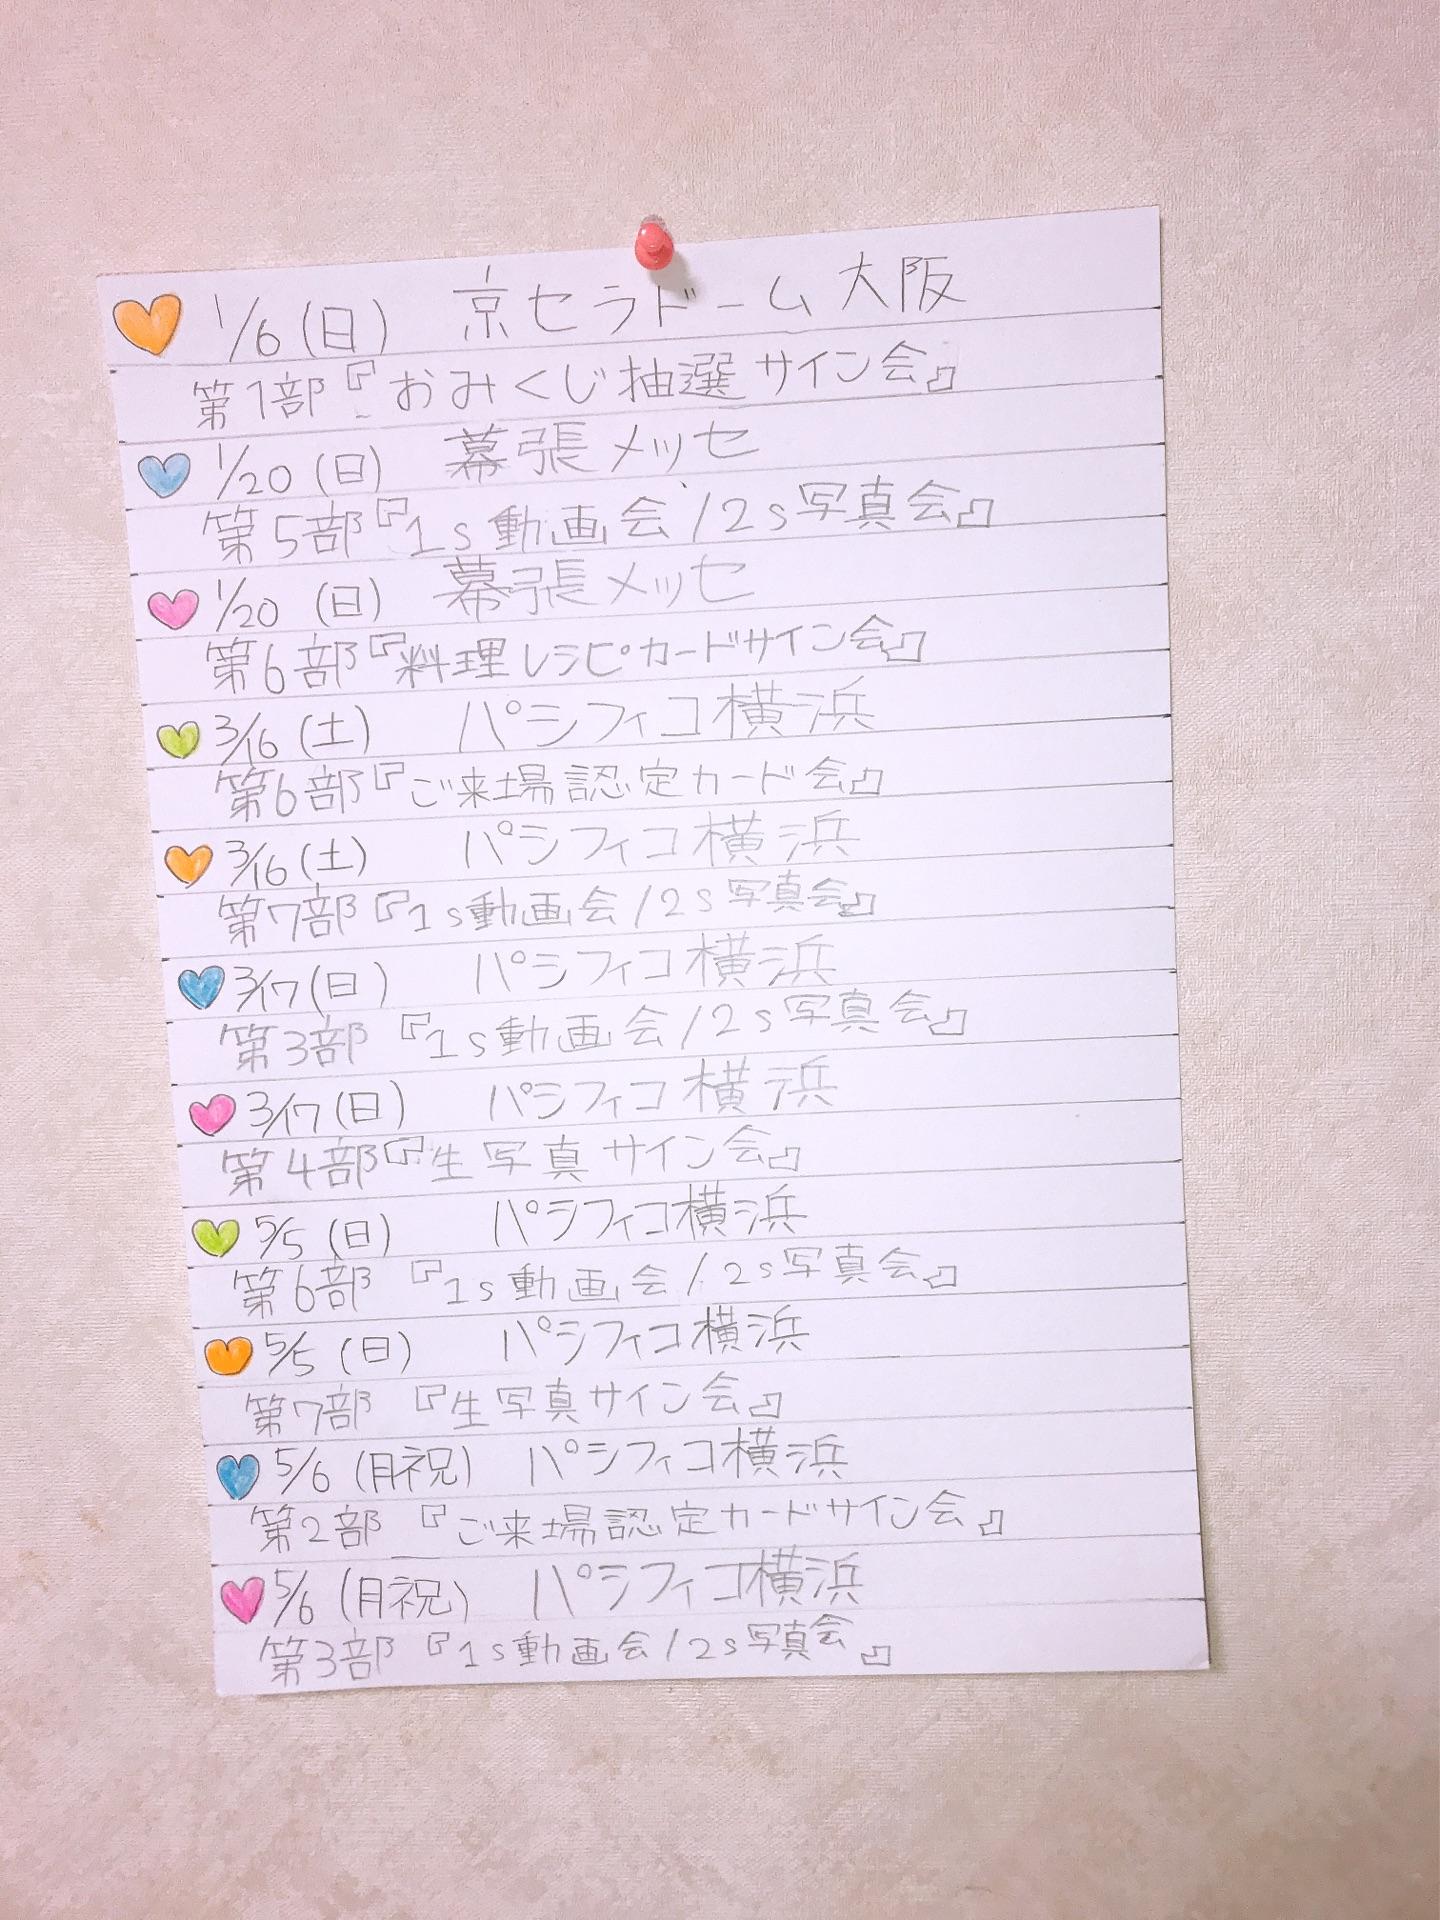 1/6(日) 京セラドーム大阪
第1部『おみくじ抽選サイン会』
1/20(日) 幕張メッセ
第5部『1s動画会/2s写真会』
1/20(日) 幕張メッセ
第6部『料理レシピカードサイン会』
3/16(土) パシフィコ横浜
第6部『ご来場認定カード会』
3/16(土) パシフィコ横浜
第7部『1s動画会/2s写真会』
3/17(日) パシフィコ横浜
第3部『1s動画会/2s写真会』
3/17(日) パシフィコ横浜
第4部『生写真サイン会』
5/5(日) パシフィコ横浜
第6部『1s動画会/2s写真会』
5/5(日) パシフィコ横浜
第7部『生写真サイン会』
5/6(月祝) パシフィコ横浜
第2部『ご来場認定カードサイン会』
5/6(月祝) パシフィコ横浜
第3部『1s動画会/2s写真会』